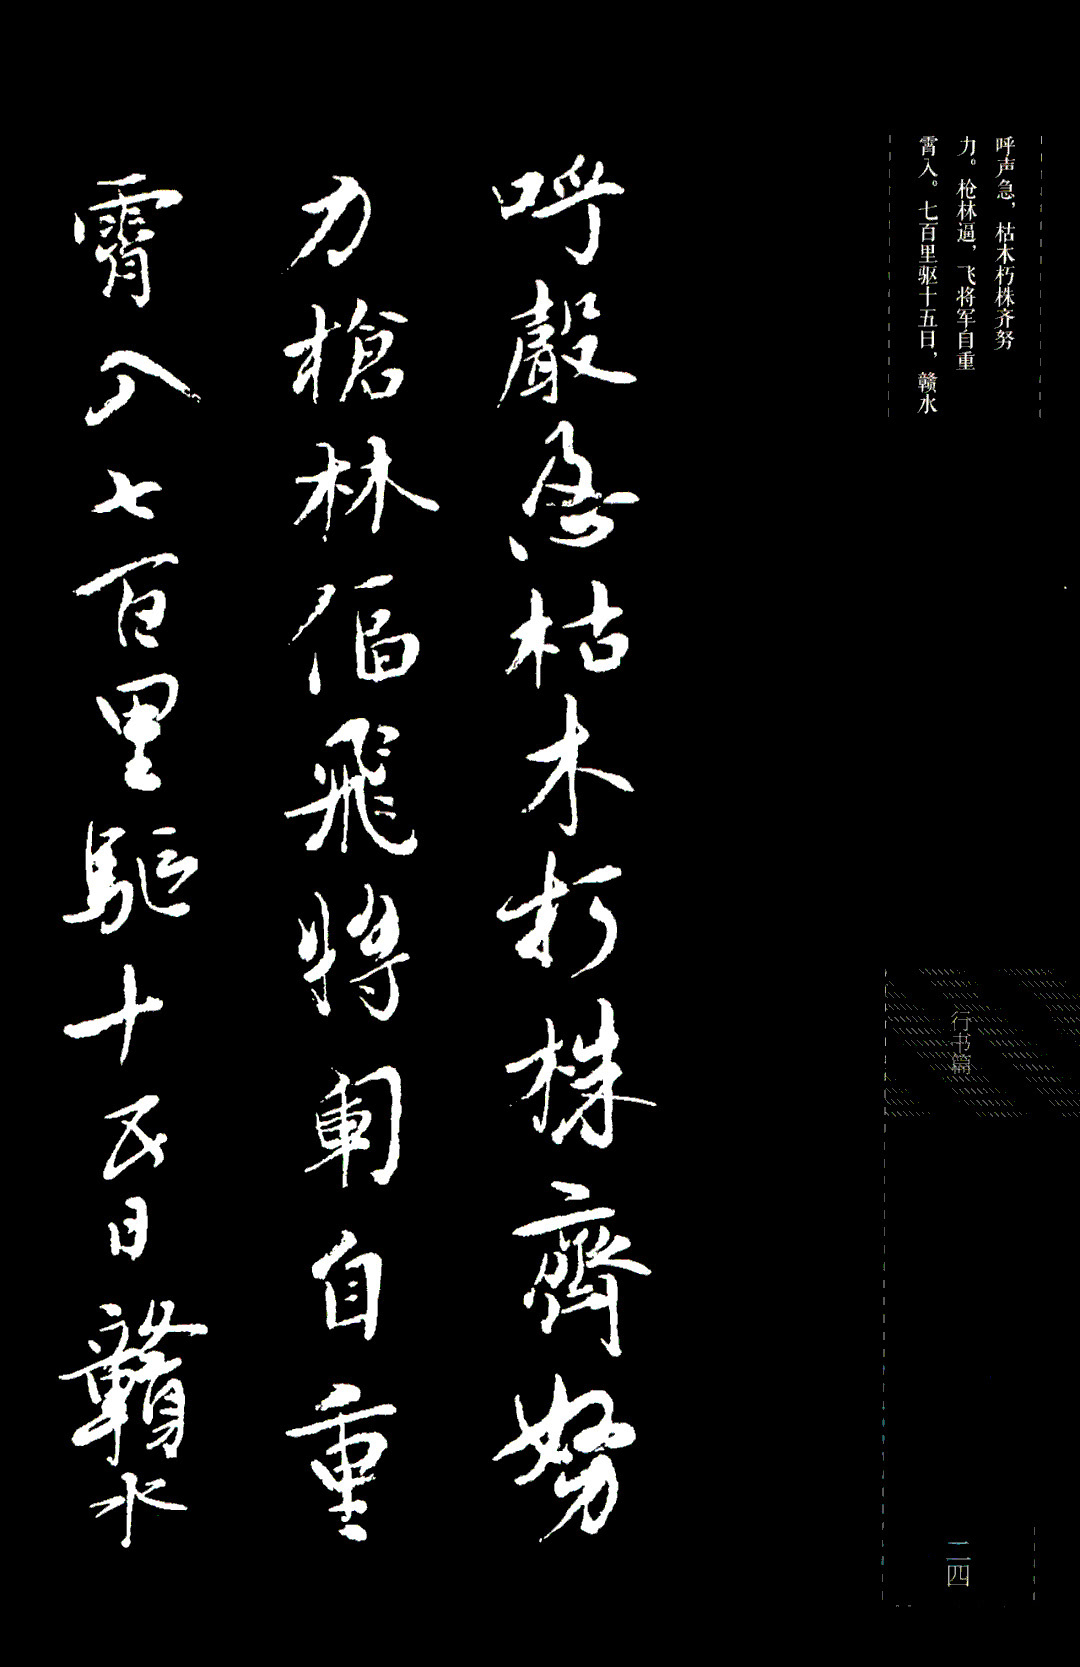 呼声急，枯木朽株齐努
力。枪林逼，飞将军自重
霄入。七百里驱十五日，赣水
呼聲急枯木朽株齊努
力槍林偪飛將軍自重
霄入七百里驅十五日贛水
行书篇
二四